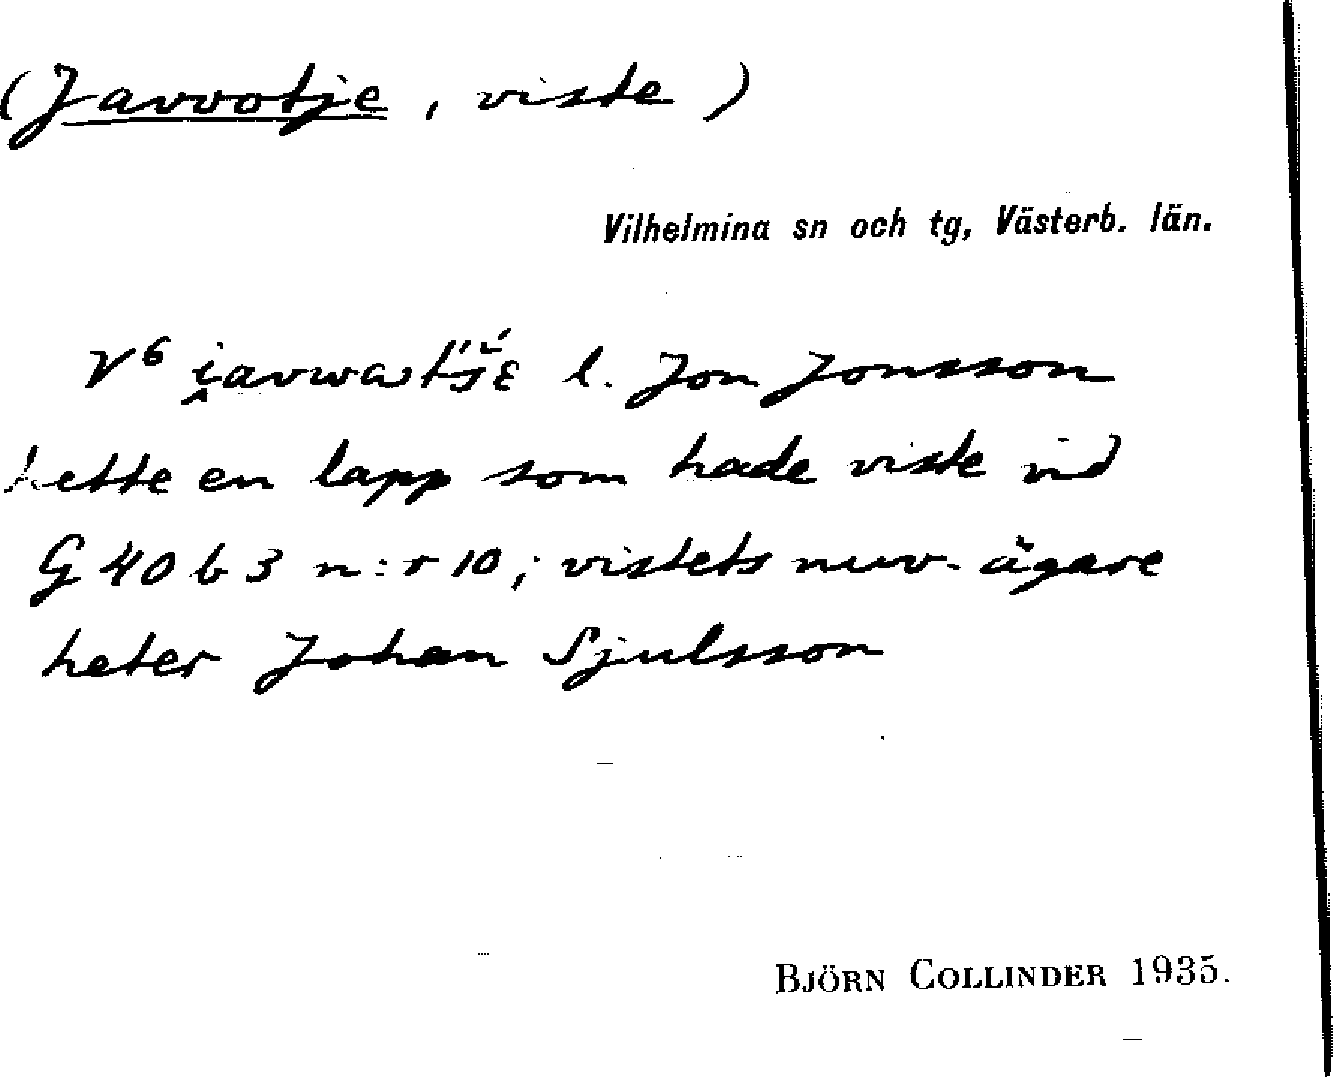 (Javvotje, viste)
Vilhelmina sn och tg, Västerb. län.
V⁶ l. Jon Jonsson
hette en lapp som hade viste vid
G 40 b 3 n:r 10; vistets nuv. ägare
heter Johan Sjulsson
BJÖRN COLLINDER 1935.